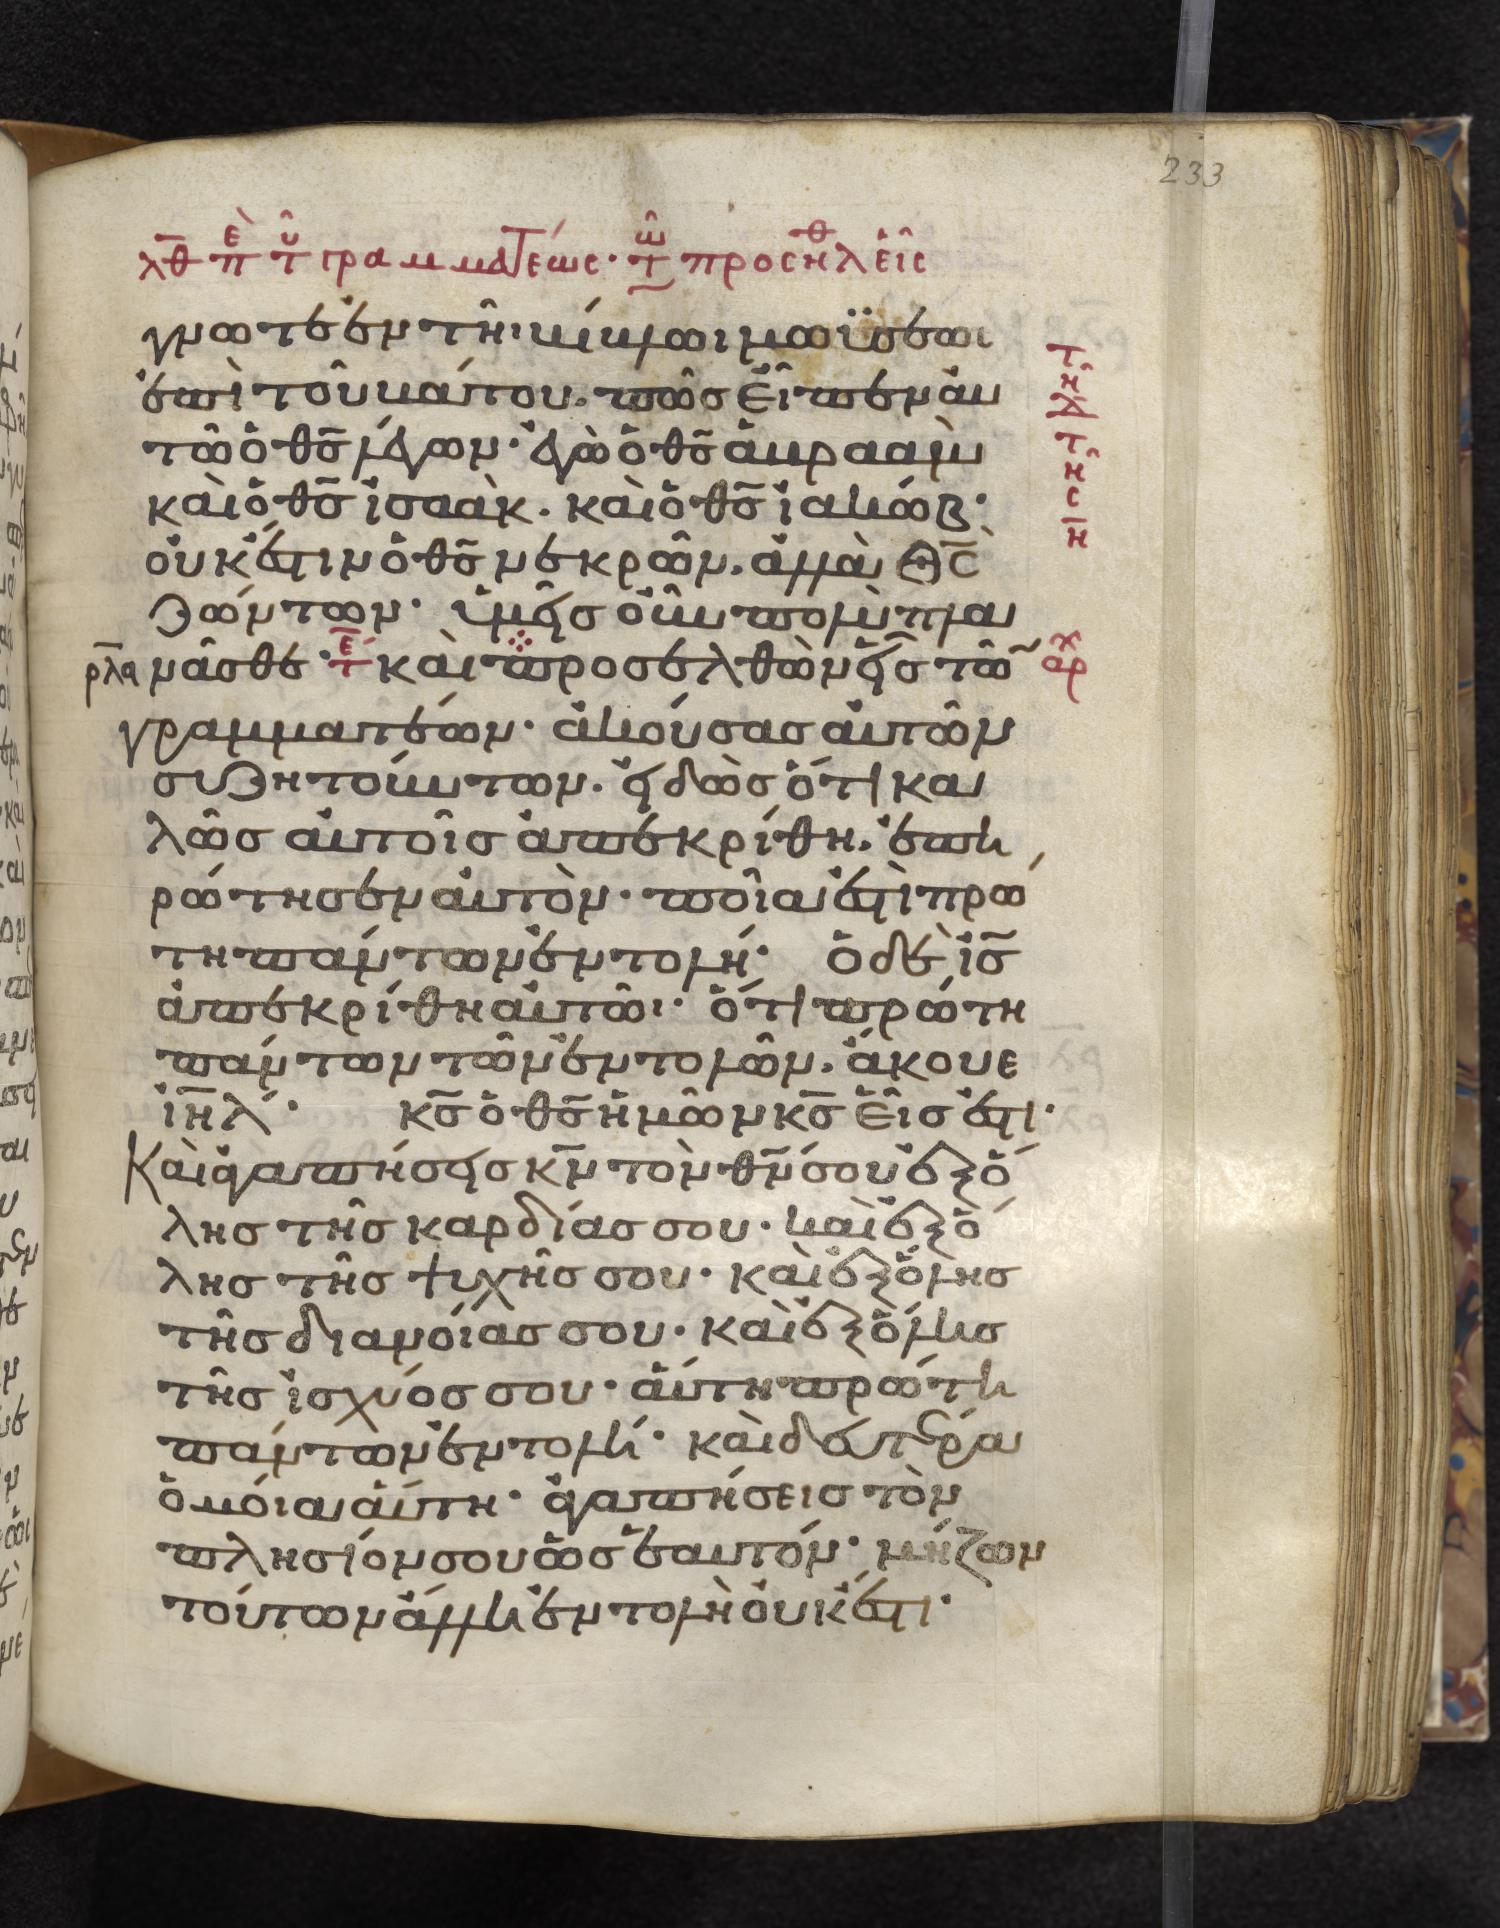 233
λθ πὲ τοῦ γραμματέως· τῶ προσηλθεῖς
γνωτε ἐν τῆι βίβλωι μωϋσέωι
ἐπὶ τοῦ βάτου. πῶς εἶπεν αὐ
τῶ ὁ θς λέγων· ἐγὼ ὁ θς ἀβρααμ
καὶ ὁ θς ἰσαὰκ. καὶ ὁ θς ἰακώβ·
οὐκ ἔστιν ὁ θς νεκρῶν. ἀλλὰ θς
ζώντων· ὑμεῖς οὖν πολὺ πλα
ρλα νᾶσθε· τε καὶ προσελθὼν εἷς τῶ
γραμματέων· ἀκούσας αὐτῶν
συζητούντων. εἰδὼς ὅτι κα
λῶς αὐτοῖς ἀπεκρίθη. ἐπη
ρώτησεν αὐτὸν· ποῖα ἐστὶ πρώ
τη πάντων ἐντολή· ὁ δὲ ις
ἀπεκρίθη αὐτῶι· ὅτι πρώτη
πάντων τῶν ἐντολῶν. ἄκουε
ιηλ· κς ὁ θς ἡμῶν κς εἷς ἐστι·
Καὶ ἀγαπήσεις κν τὸν θν σου ἐξ ὅ
λης τῆς καρδίας σου· καὶ ἐξ ὅ
λης τῆς ψυχῆς σου· καὶ ἐξ ὅλης
τῆς διανοίας σου· καὶ ἐξ ὅλης
τῆς ἰσχύος σου· αὕτη πρώτη
πάντων ἐντολή· καὶ δευτέρα
ὁμοία αὕτη· ἀγαπήσεις τὸν
πλησίον σου ὡς ἑαυτόν· μείζων
τούτων ἄλλη ἐντολὴ οὐκ ἔστι·
τῆ δ τῆς η
αρχ